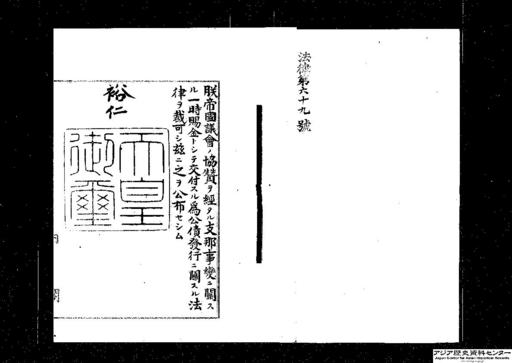 法律第六十九號
朕帝國議會ノ協贊ヲ經タル支那事變ニ關ス
ル一時賜金トシテ交付スル爲公債發行ニ關スル法
律ヲ裁可シ茲ニ之ヲ公布セシム
裕仁
天皇
御璽
内閣
アジア歴史資料センター
Japan Center for Asian Historical Records